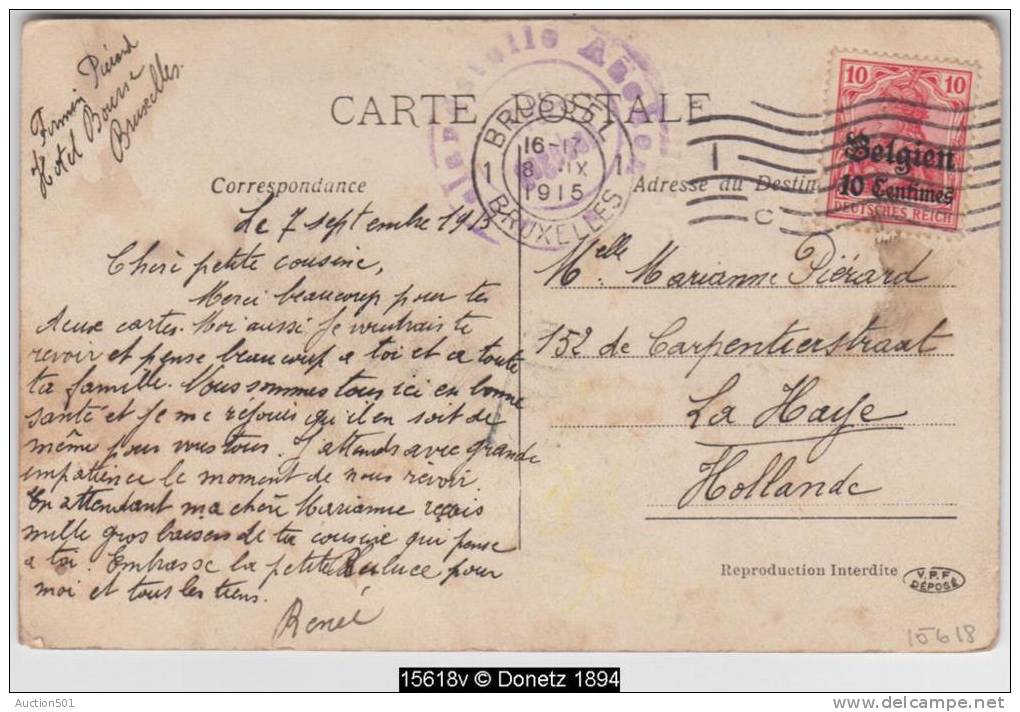 Firmin Piérard
Hotel Bourse
Bruxelles.
CARTE POSTALE
BRUSSEL
16-17
1 8 IX 1
1915
BRUXELLES
10 10
Belgien
10 Centimes
DEUTSCHES REICH
Correspondance
Adresse du Destin
Le 7 septembre 1915
Chère petite cousine,
Merci beaucoup pour tes
deux cartes. Moi aussi je voudrais te
revoir et pense beaucoup a toi et a toute
ta famille. Nous sommes tous ici en bonne
santé et je me rejouis qu'il en soit de
même pour vous tous. J'attends avec grande
impatience le moment de nous revoir.
En attendant ma chère Marianne reçois
mille gros baisers de ta cousine qui pense
a toi. Embrasse la petite pour
moi et tous les tiens.
Renée
Melle Marianne Piérard
152 de Carpentierstraat
La Haye
Hollande
Reproduction Interdite
V.P.F
DÉPOSÉ
15618
15618v © Donetz 1894
Auction501
delcampe.net